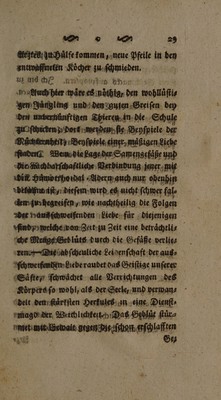 29
Arztes zu Hülfe kommen, neue Pfeile in den
entwaffneten Köcher zu schmieden.
Auch hier wäre es nöthig, den wohllüsti-
gen Jüngling und den guten Greisen bey
den unvernünftigen Thieren in die Schule
zu schicken; dort werden sie Beyspiele der
Beyspiele einer mäßigen Liebe
finden. Wem die Lage der Samengefäße und
die Nachbarschaftliche Verbindung jener mit
den Hämorrhoidal-Adern auch nur obenhin
bekannt ist, diesem wird es nicht schwer fal-
len zu begreifen, wie nachtheilig die Folgen
der ausschweifenden Liebe für diejenigen
sind, welche von Zeit zu Zeit eine beträchtli-
che Menge Geblüts durch die Gefäße verlie-
ren. — Die abscheuliche Leidenschaft der aus-
schweifenden Liebe raubet das Geistige unserer
Säfte, schwächet alle Verrichtungen des
Körpers so wohl, als der Seele, und verwan-
delt den stärksten Herkules in eine Dienst-
magd der Weichlichkeit. Das Geblüt stür-
met mit Gewalt gegen die schon erschlafften
Ge-